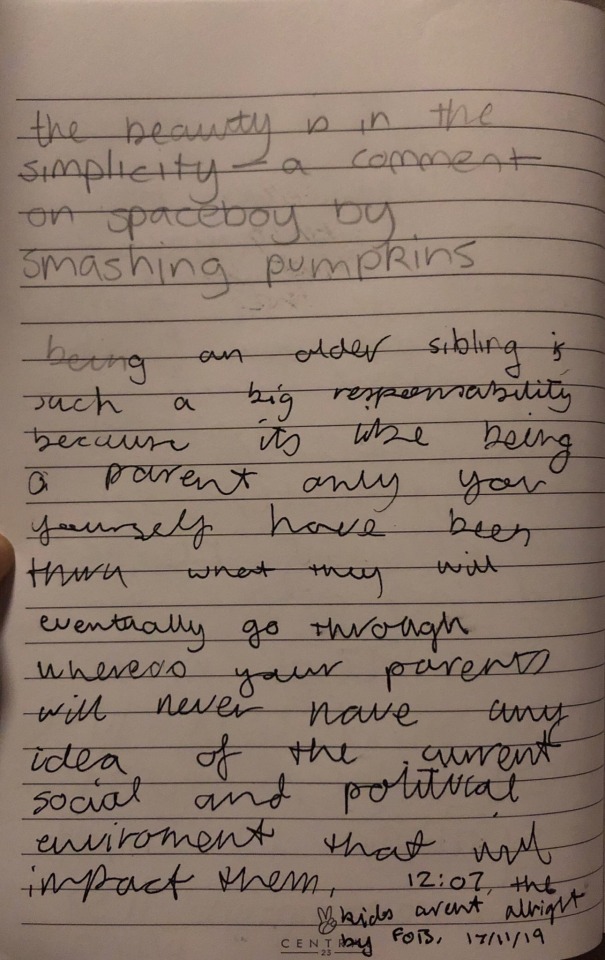 the beauty is in the
simplicity – a comment
on spaceboy by
smashing pumpkins
being an older sibling is
such a big responsability
because its like being
a parent only you
yourself have been
thru what they will
eventually go through
whereas your parents
will never have any
idea of the current
social and political
enviroment that will
impact them, 12:07, the
kids arent alright
by FOB, 17/11/19
CENTR
23